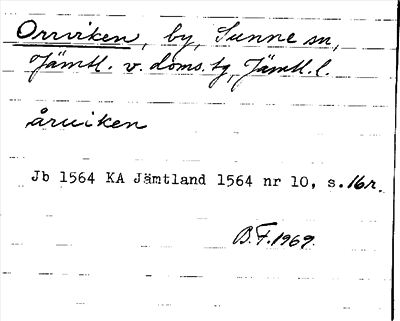 Orrviken, by, Sunne sn,
Jämtl. v. doms.tg, Jämtl.l.
åruiken
Jb 1564 KA Jämtland 1564 nr 10, s.16r.
B.F.1969.